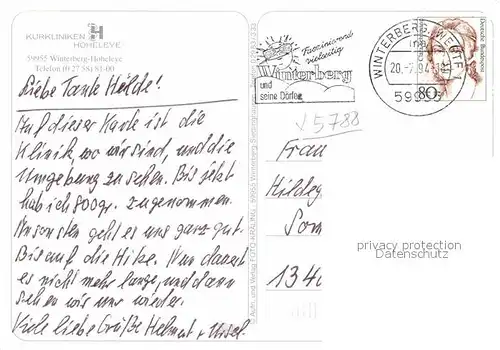 KURKLINIKEN H
HOHELEYE
59955 Winterberg-Hoheleye
Telefon (0 27 58) 81-00
Liebe Tante Hilde!
Auf dieser Karte ist die
Klinik, wo wir sind, und die
Umgebung zu sehen. Bis jetzt
hab ich 800gr. zugenommen.
Ansonsten geht es uns ganz gut.
Bis auf die Hitze. Nun dauert
es nicht mehr lange, und dann
sehen wir uns wieder.
Viele liebe Grüße Helmut + Ursel.
Faszinierend
vielseitig
Winterberg
und
seine Dörfer
WINTERBERG, WESTF 1
20.-7.94
59955
Deutsche Bundespost
80
5788
Frau
Hildeg
Som
1340
privacy protection
Datenschutz